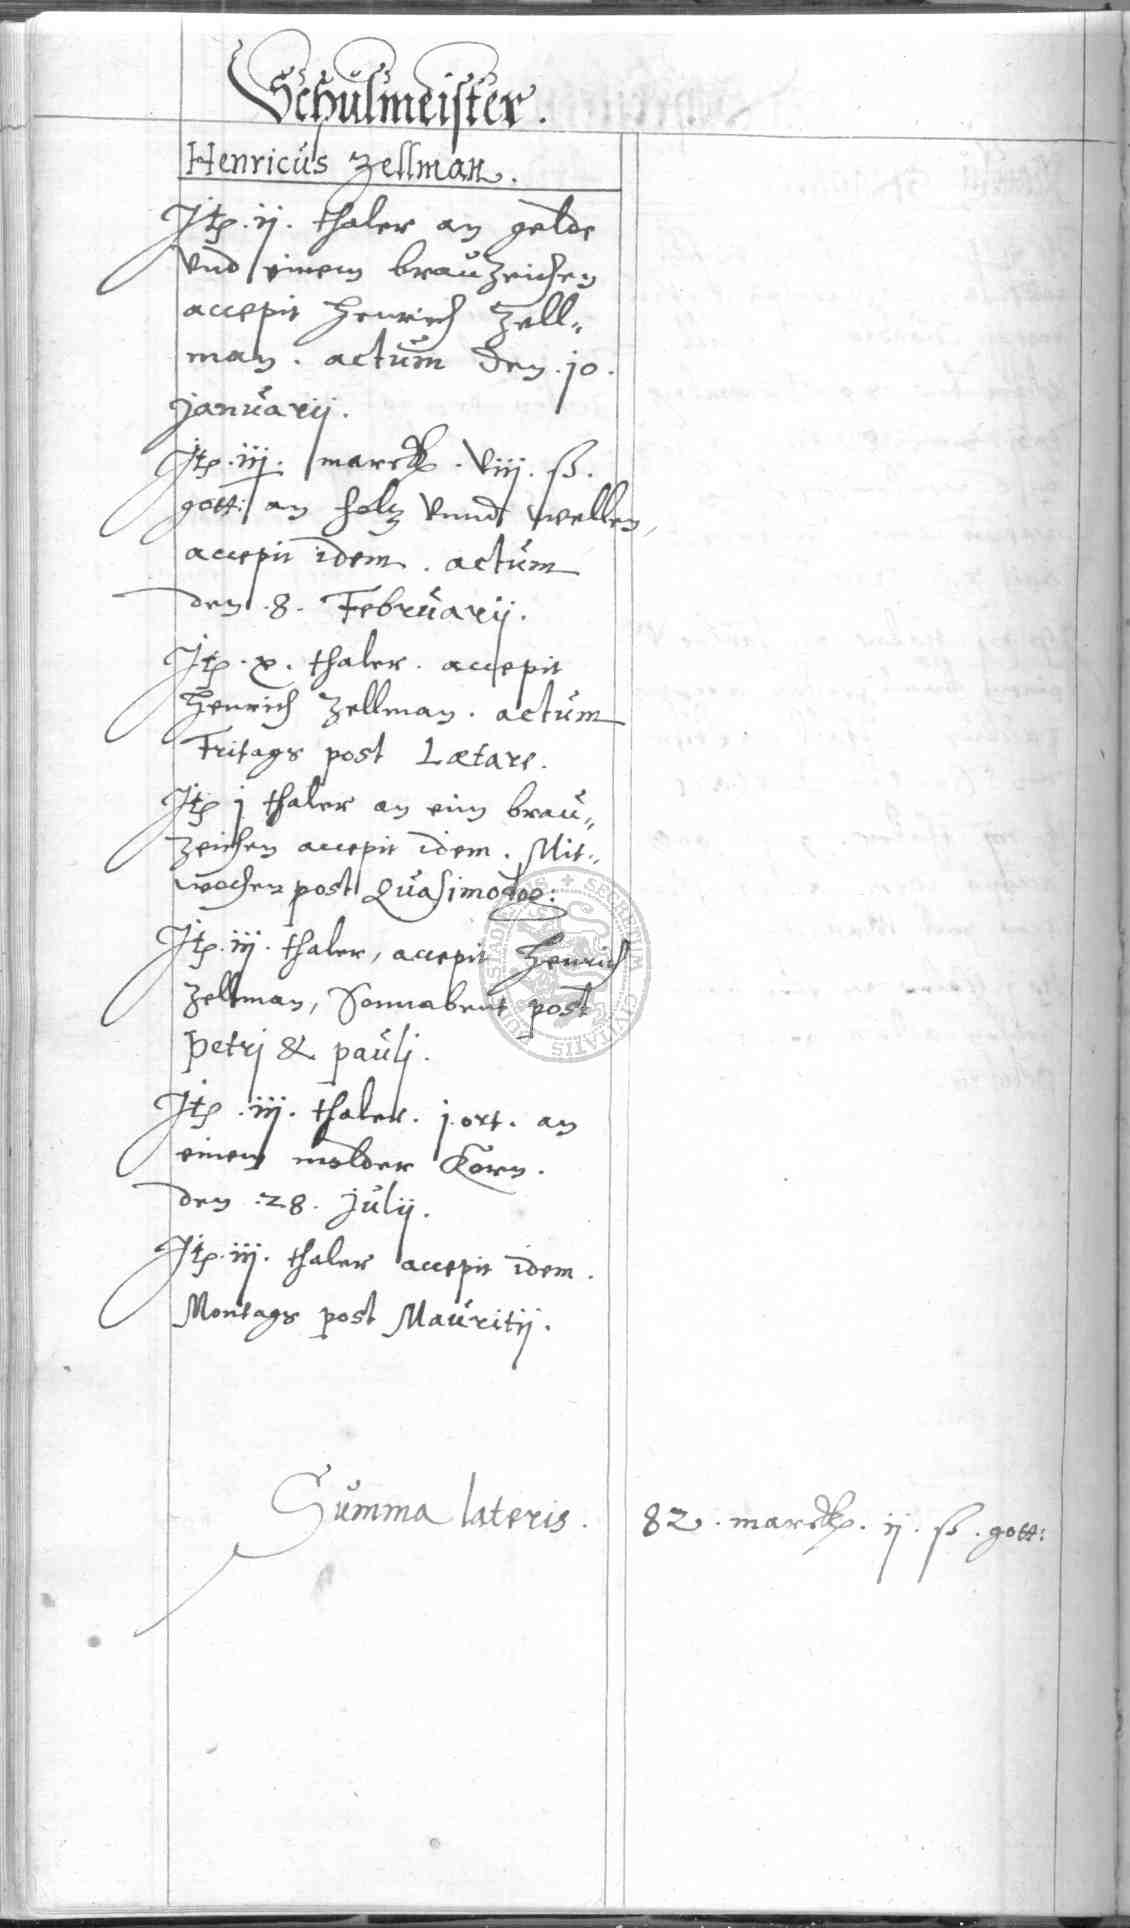 Schulmeister.
Henricus Zellman.
Itp .ij. thaler an gelde
vnd einem brauzeichen
accepit Henrich Zell„
man. actum den .10.
Januarij.
Itp .iij. marck. viij. ß.
gott: an holtz vnnd wellen,
accepit idem. actum
den .8. Februarij.
Itp .x. thaler. accepit
Henrich Zellman. actum
Fritags post Lætare.
Itp j thaler an eim brau„
zeichen accepit idem. Mit„
wochen post Quasimodo:
Itp .iij. thaler, accepit Henrich
Zellman, Sonnabent post
Petrj & Paulj.
Itp .iij. thaler. j. ort. an
einem molder Korn.
den .28. Julij.
Itp .iij. thaler accepit idem.
Montags post Mauritij.
Summa lateris. 82. marck. ij. ß. gott:
SECRETUM CIVITATIS